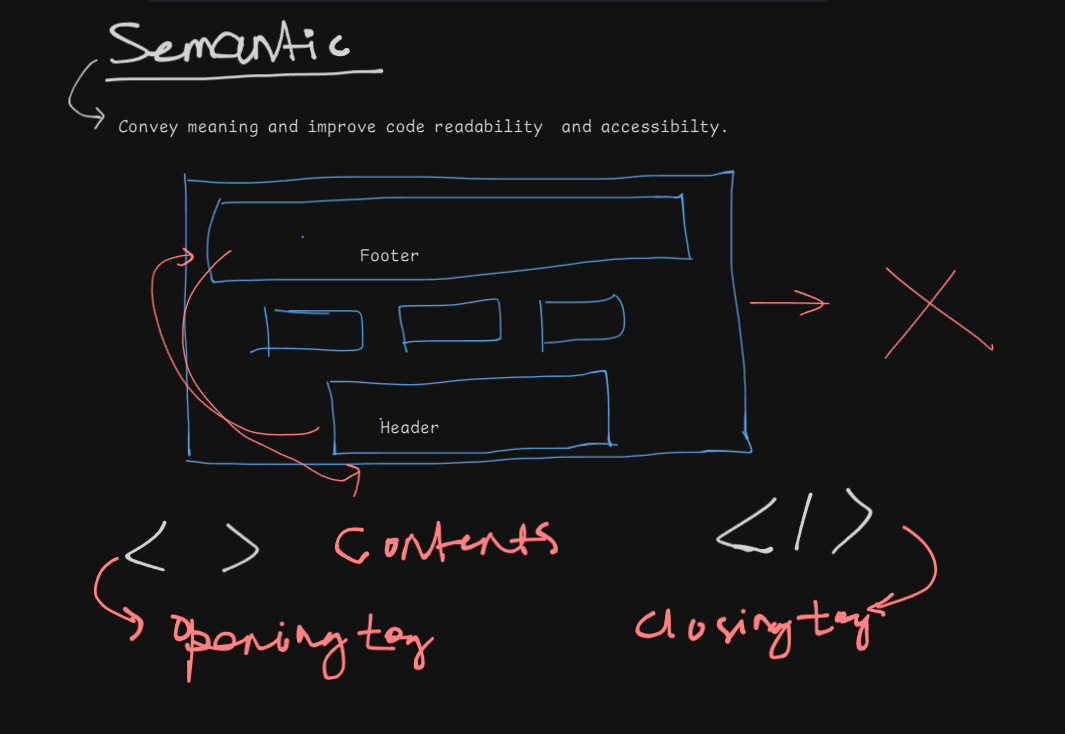 Semantic
Convey meaning and improve code readability and accessibilty.
Footer
Header
< > Contents </>
Opening tag closing tag